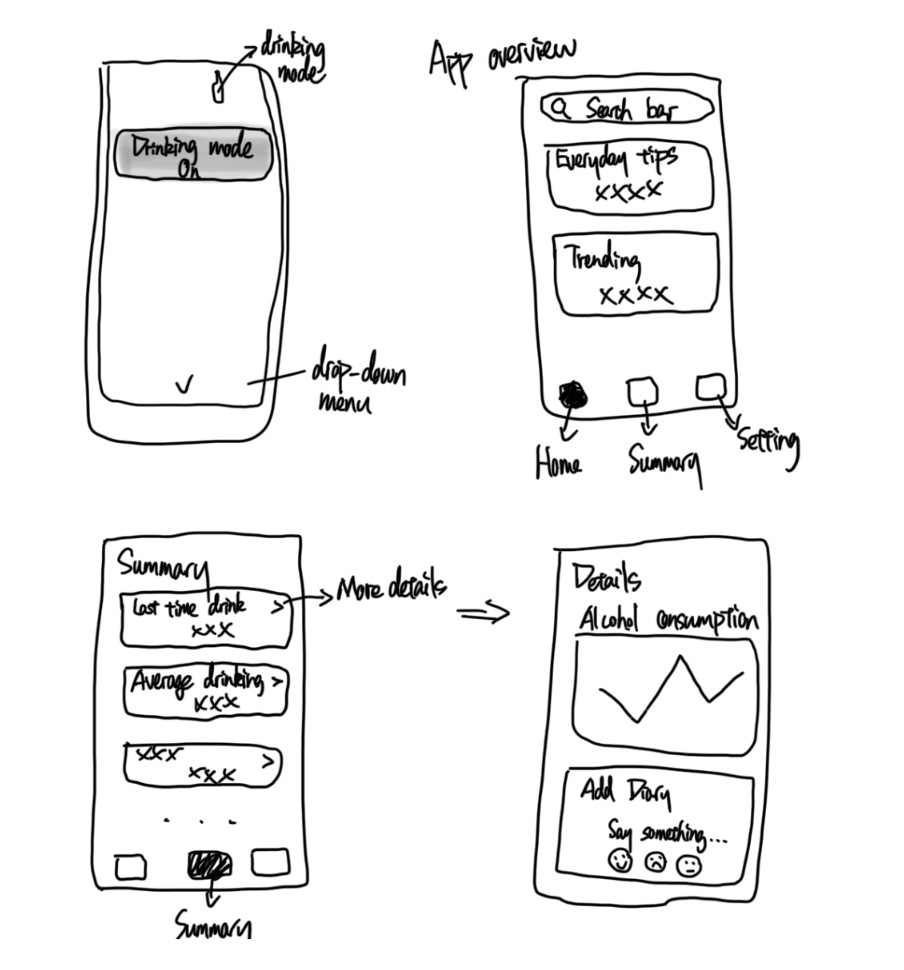 drinking
mode
Drinking mode
On
drop-down
menu
App overview
Search bar
Everyday tips
xxxx
Trending
xxxx
Home
Summary
Setting
Summary
Last time drink >
xxx
More details
Average drinking >
xxx
xxx >
xxx
. . .
Summary
Details
Alcohol consumption
Add Diary
Say something...